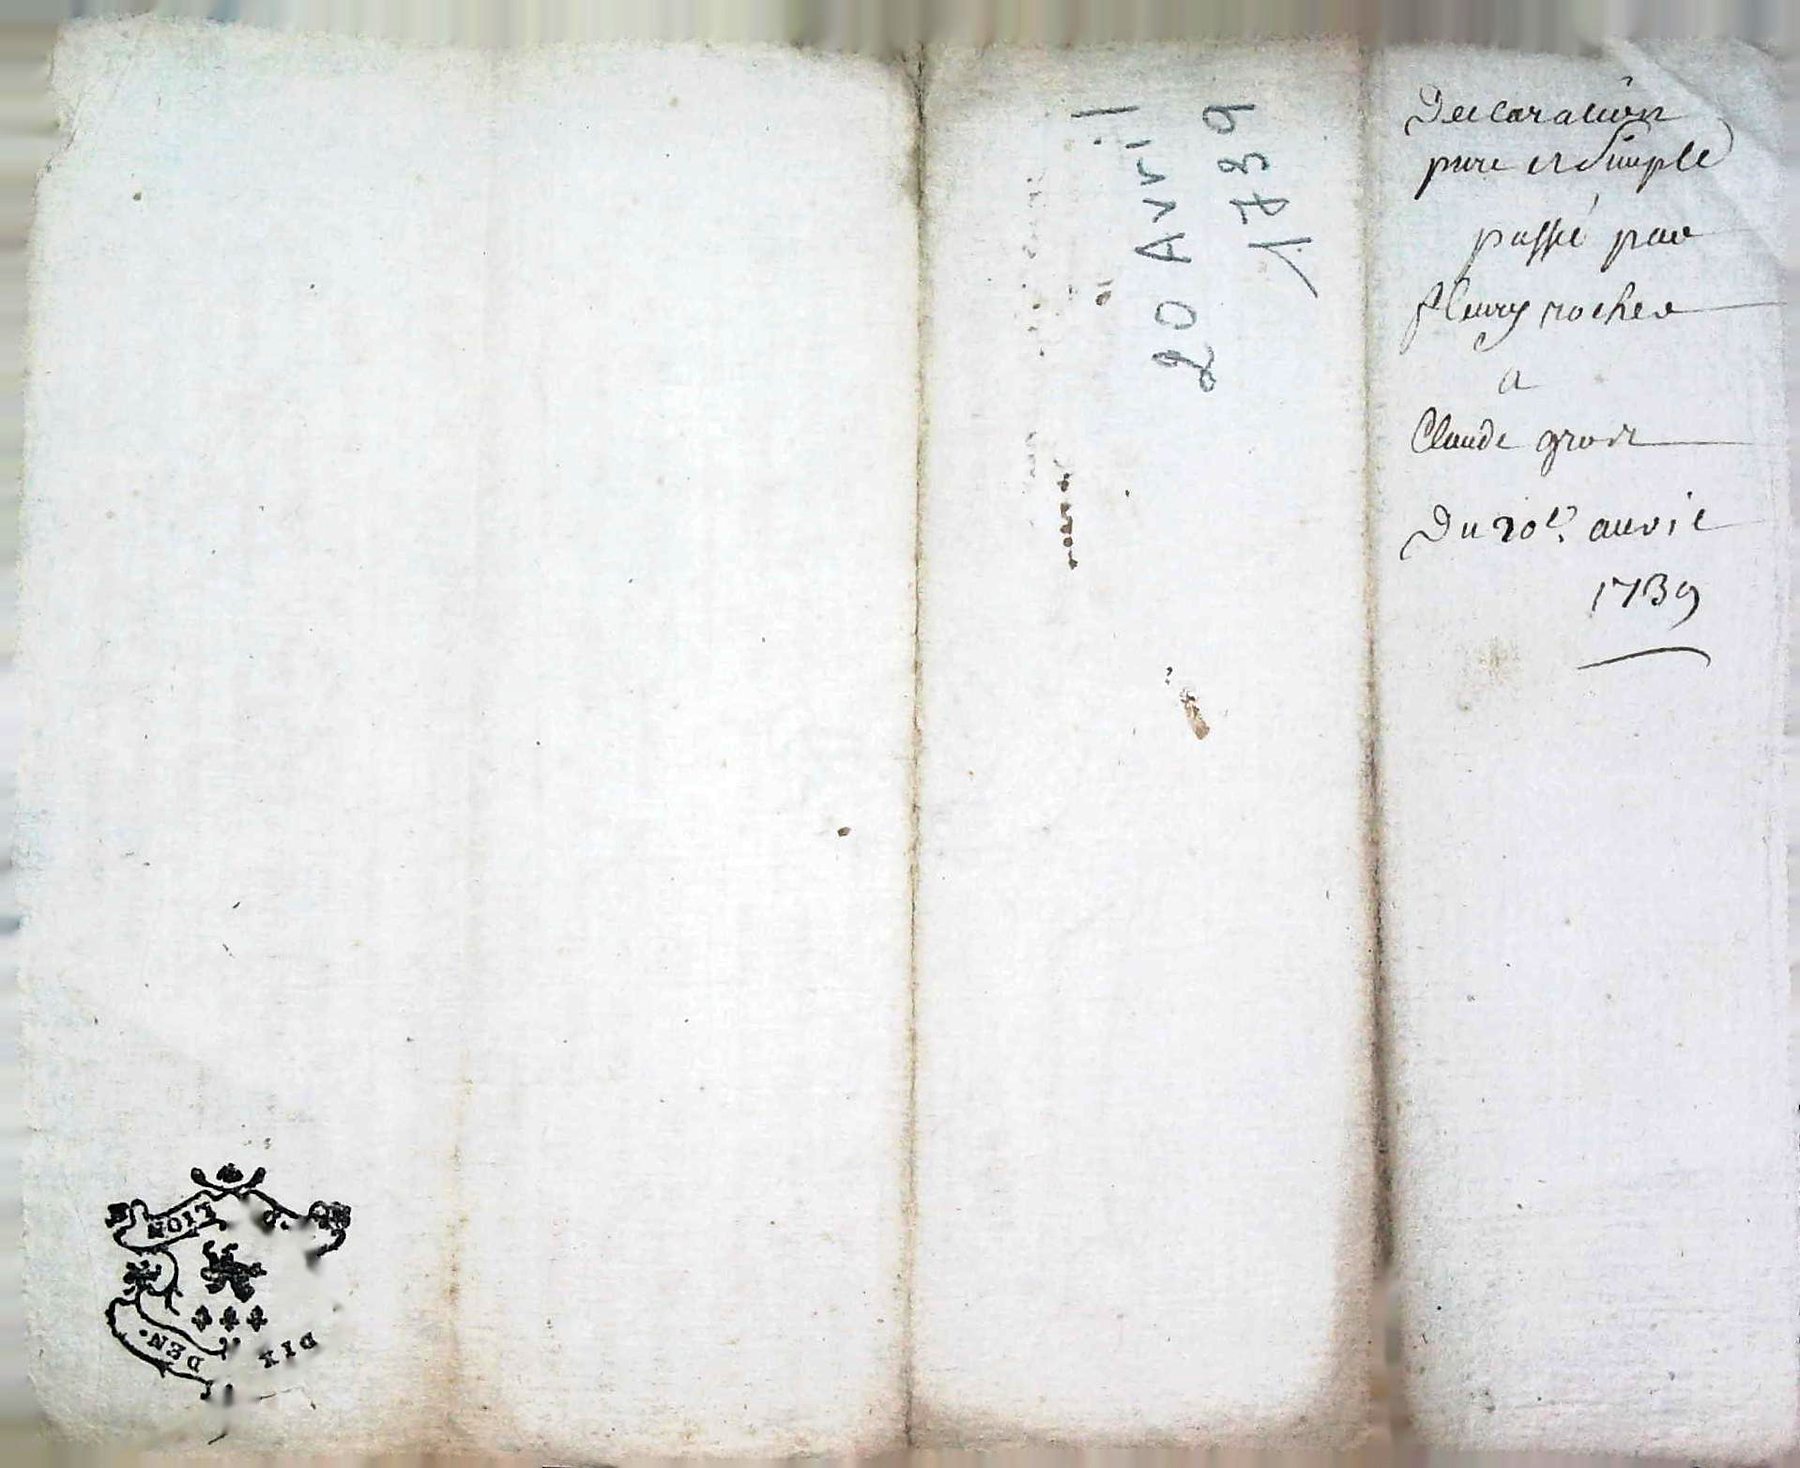 Declaration
pure et Simple
passé par
fleury rocher
a
Claude gros
Du 20e. auril
1739
20 Avril
1739
LION
DIX
DEN.